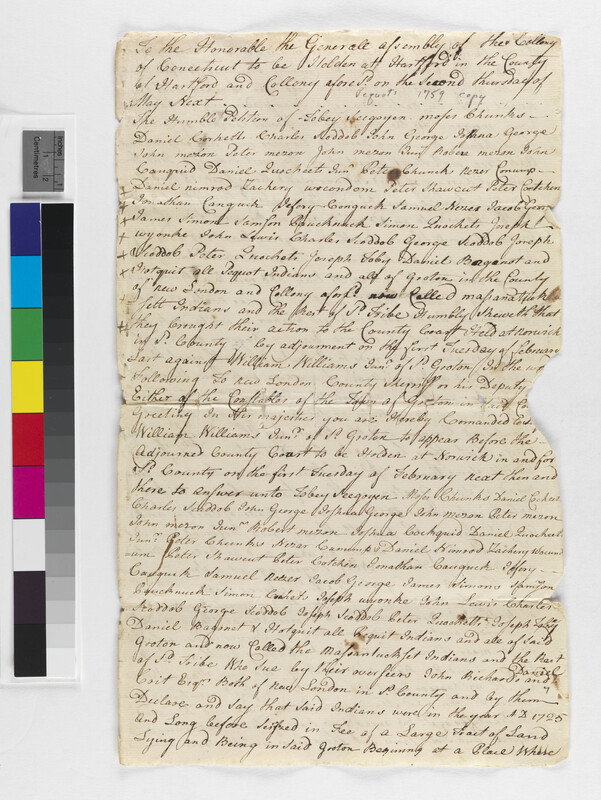 To the Honorable the Generall assembly of their Collony
of Conecticut to be Holden att Hartford in the County
of Hartford and Collony afores.d on the Second thursday of
May Next
Pequots 1759 copy
The Humble Petition of Tobey Seegoyen moses Chunks
Daniel Corkett Charles Scoddob John George Joshua George
John mezon Peter mezon John mezon Jun.r Robert mezon John
Cauquid Daniel Quocheets Jun.r Peter Chunks Nezer
Daniel nimrod Zachery wocondom Peter Shawcut Peter Cotcken
Jonathan Cauquck Jefery Conquck Samuel Nezer Jacob Geor
James Simon Samson Cauchnuck Simon Quochets Joseph
wyonke John Lewis Charles Scoddob George Scoddob Joseph
Scoddob Peter Quochets Joseph Tobey Daniel Bagonot and
Hotquit all Pequot Indians and all of Groton in the County
of New London and Collony afors.d now Called mashantuck
Sett Indians and the Rest of S.d Tribe Humbly Sheweth that
they Brought their action to the County Court Held at Norwich
in S.d County by adjournment on the first Tuesday of February
Last against William Williams Jun.r of S.d Groton In the wo
Following To New London County Sherriff or his Deputy
Either of the Constables of the Town of Groton in said Co
Greeting In His majesties you are Hereby Comanded to
William Williams Jun.r of S.d Groton to appear Before the
Adjourned County Court to be Holden at Norwich in and for
S.d County on the first Tuesday of February next then and
there to answer unto Tobey Seegoyen Moses Chunks Daniel Corkett
Charles Scoddob John George Joshua George John Mezon Peter mezon
John mezon Jun.r Robert mezon Joshua Cockquid Daniel Quocheets
Jun.r Peter Chunks Nezer Daniel Nimrod Zachery wocond
um Peter Shawcut Peter Cotcken Jonathan Cauquck Jefery
Cauquck Samuel Nezer Jacob George James Simons Samson
Cauchnuck Simon Joseph wyonke John Lewis Charles
Scoddob George Scoddob Joseph Scoddob Peter Quochetts Joseph Tobey
Daniel Bagonet & Hotquit all Pequit Indians and all of Said
Groton and now Called the Mashantuckset Indians and the Rest
of S.d Tribe Who Sue by their overseers John Richards and Daniel
Coit Esq.rs Both of New London in S.d County and by them
Declare and say that said Indians were in the year AD 1725
and Long before Seized in Fee of a Large Tract of Land
Lying and Being in said Groton Begining at a Place Where